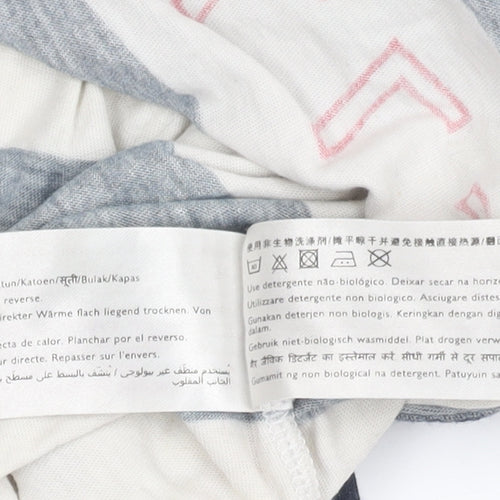 tun/Katoen/सूती/Bulak/Kapas
reverse.
direkter Wärme flach liegend trocknen. Von
ecta de calor. Planchar por el reverso.
ur directe. Repasser sur l'envers.
يُستخدم منظف غير بيولوجي / يُنشّف بالبسط على مسطح
الجانب المقلوب
使用非生物洗涤剂/摊平晾干并避免接触直接热源/翻
Use detergente não-biológico. Deixar secar na horizo
Utilizzare detergente non biologico. Asciugare distes
Gunakan deterjen non biologis. Keringkan dengan dig
dalam.
Gebruik niet-biologisch wasmiddel. Plat drogen verw
गैर जैविक डिटर्जेंट का इस्तेमाल करें सीधी गर्मी से दूर सपा
Gumamit ng non biological na detergent. Patuyuin sa